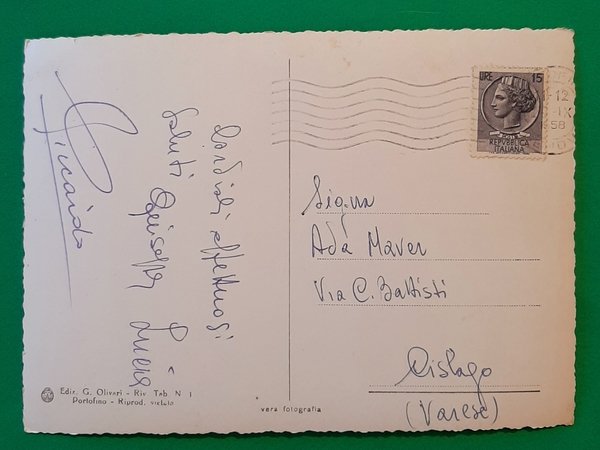 Cordiali affettuosi
saluti Giuseppe Lucia
Riccardo
LIRE 15
REPVBBLICA
ITALIANA
12
IX
58
Sig.na
Ada Maver
Via C. Battisti
Cislago
(Varese)
Ediz. G. Olivari - Riv. Tab. N 1
Portofino - Riprod. vietata
vera fotografia